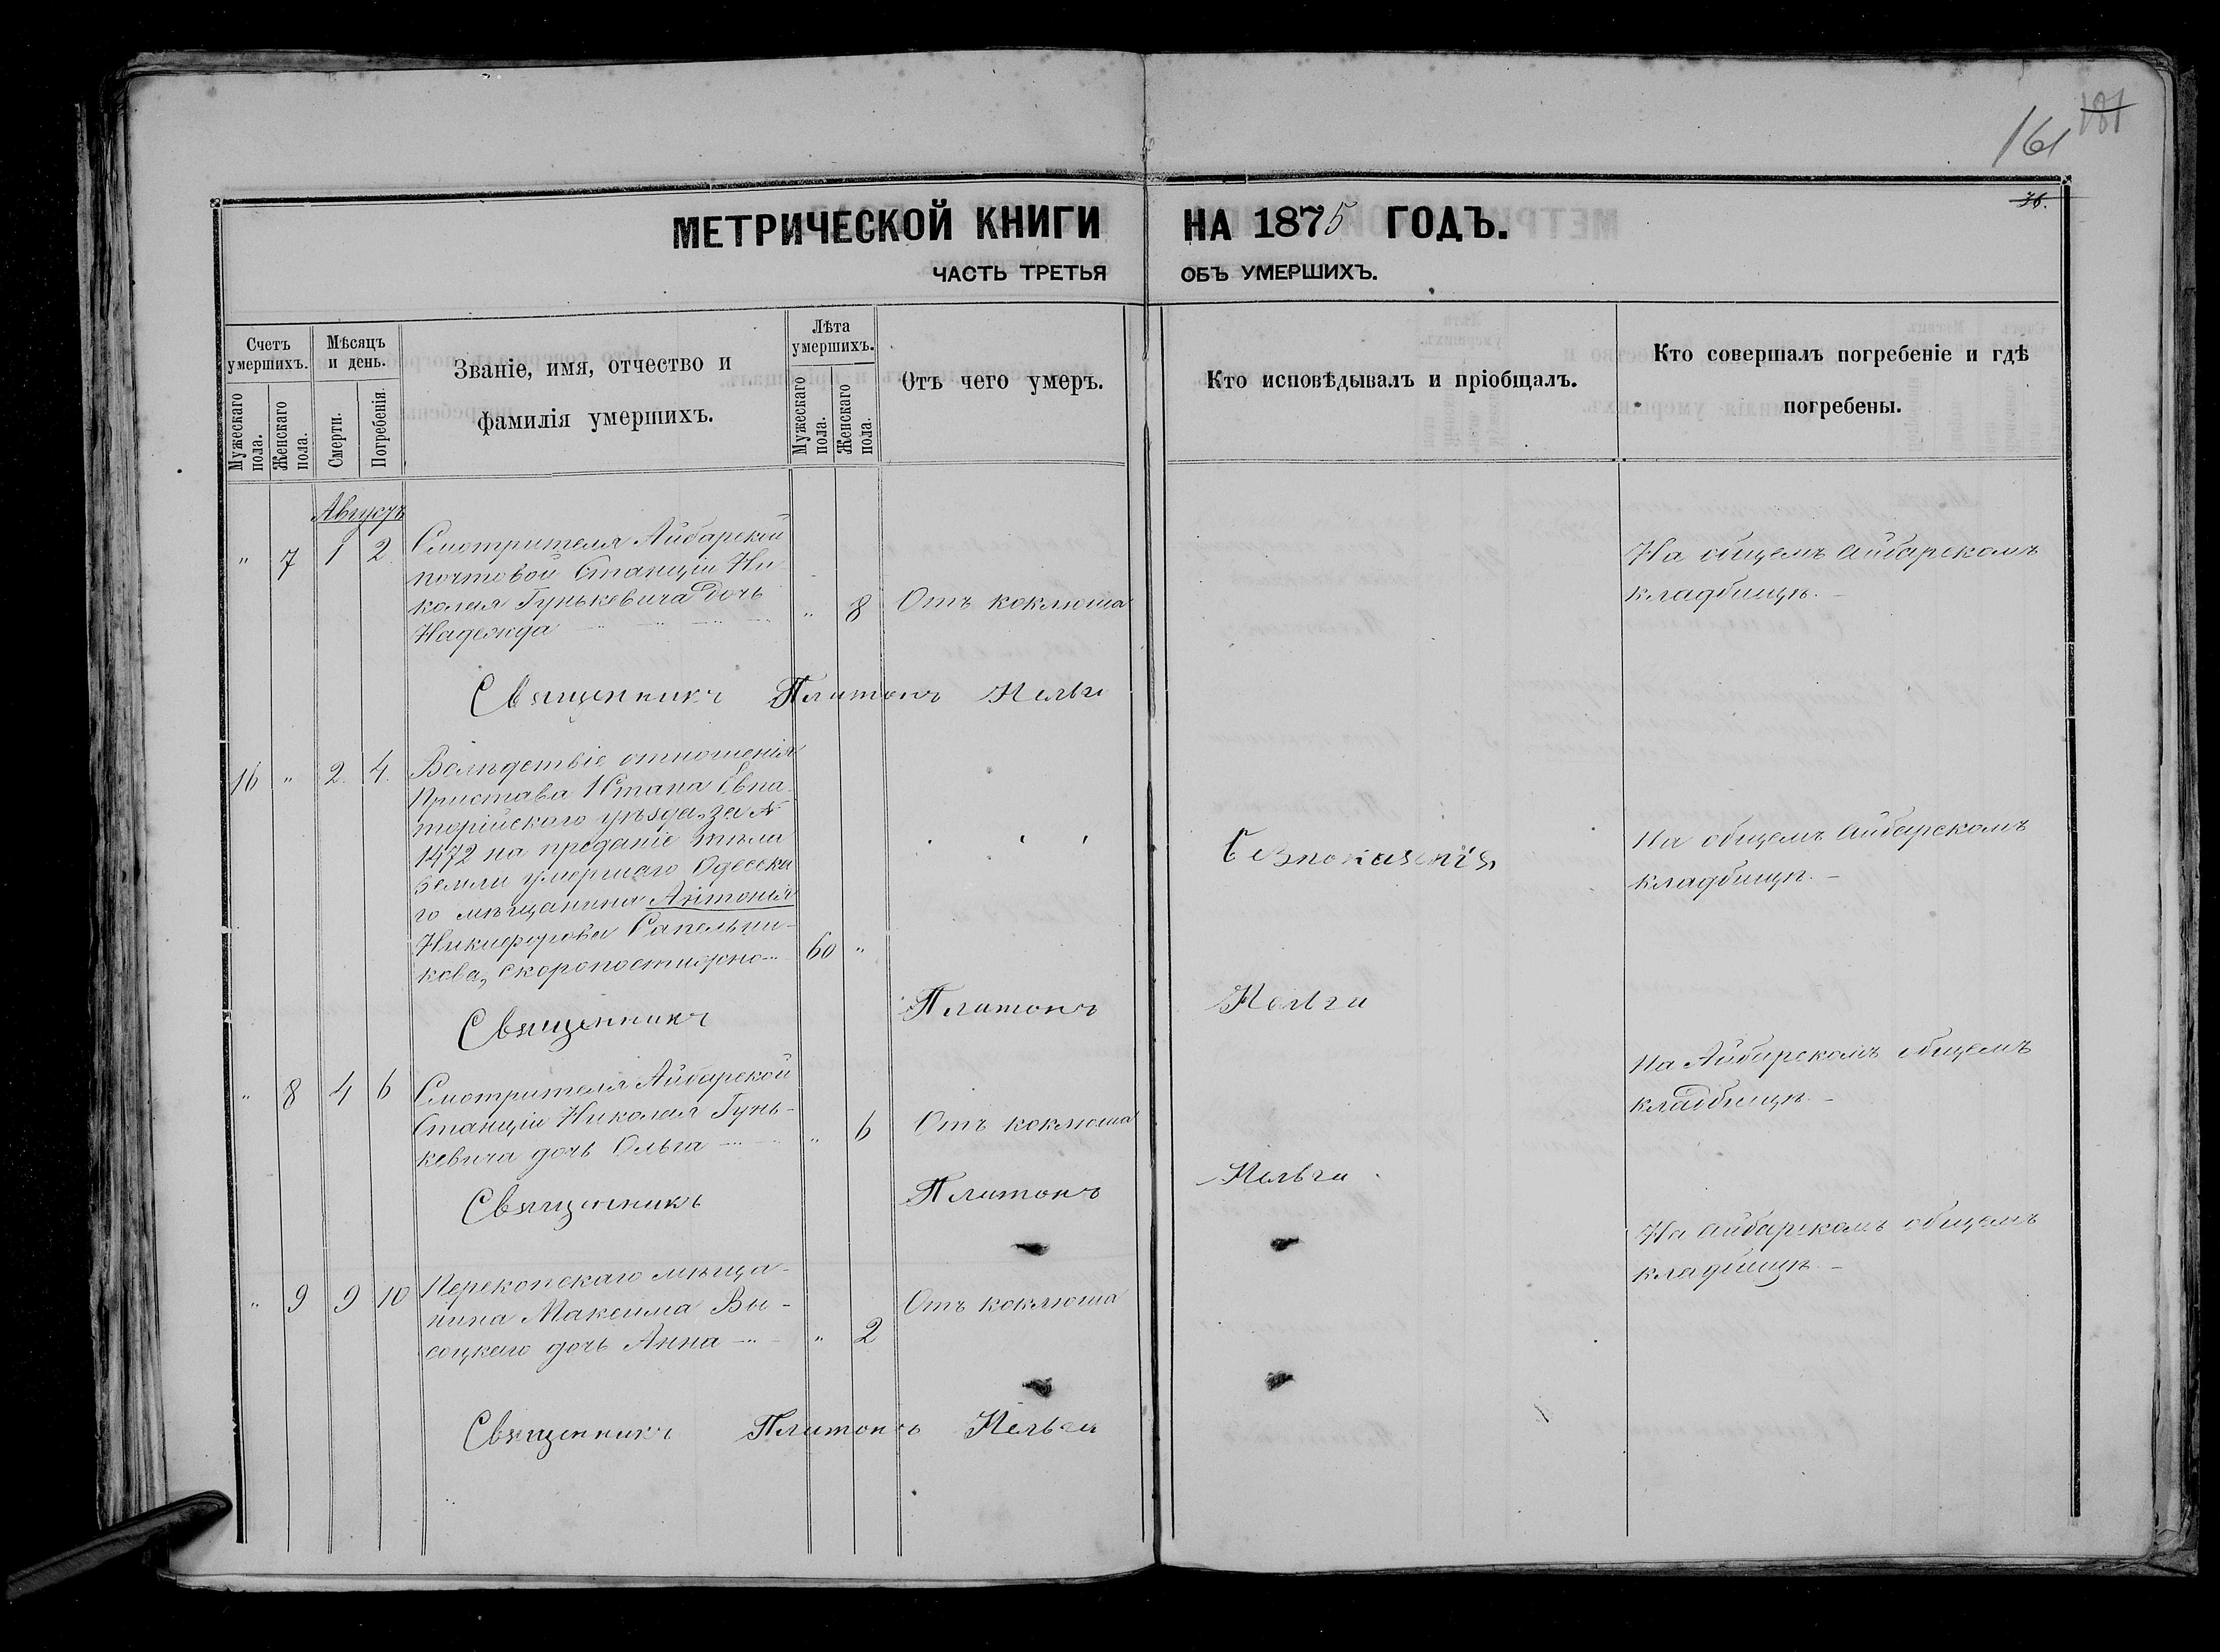 161 181
36.
МЕТРИЧЕСКОЙ КНИГИ НА 1875 ГОДЪ.
ЧАСТЬ ТРЕТЬЯ ОБЪ УМЕРШИХЪ.
Счетъ умершихъ.
Мужескаго пола.
Женскаго пола.
Мѣсяцъ и день.
Смерти.
Погребенія.
Званіе, имя, отчество и
фамилія умершихъ.
Лѣта умершихъ.
Мужескаго пола.
Женскаго пола.
Отъ чего умеръ.
Кто исповѣдывалъ и пріобщалъ.
Кто совершалъ погребеніе и гдѣ
погребены.
Августъ
" 7 1 2 Смотрителя Айбарской
почтовой Станціи Ни
колая Гунькевича дочь
Надежда " 8 Отъ коклюша
На общемъ Айбарскомъ
кладбищѣ. –
Священникъ Платонъ
16 " 2. 4. Вслѣдствіе отношенія
Пристава 1 Стана Евпа
торійскаго уѣзда, за №
1472 на преданіе тѣла
земли умершаго Одесска
го мѣщанина Антонія
Никифорова Сапельни-
кова, скоропостижно 60 "
Безпокаянія
На общемъ Айбарскомъ
кладбищѣ. –
Священникъ Платонъ
" 8 4 6 Смотрителя Айбарской
Станціи Николая Гунь-
кевича дочь Ольга " 6 Отъ коклюша
На Айбарскомъ общемъ
кладбищѣ. –
Священникъ Платонъ
" 9 9 10 Перекопскаго мѣща-
нина Максима Вы-
соцкаго дочь Анна " 2
Отъ коклюша
На Айбарскомъ общемъ
кладбищѣ. –
Священникъ Платонъ